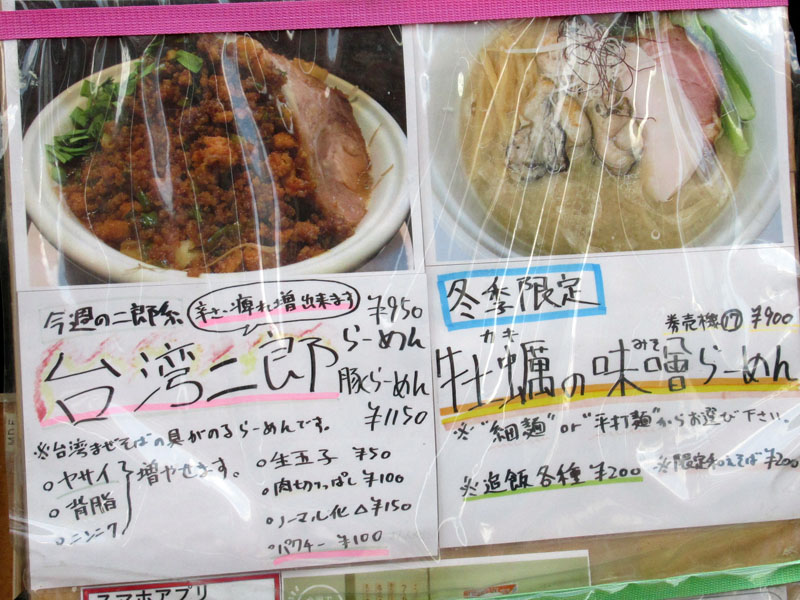 今週の二郎系
辛さ、痺れ増出来ます
¥950
台湾二郎
らーめん
豚らーめん
¥1150
※台湾まぜそばの具がのるらーめんです。
○ヤサイ
○背脂
○ニンニク
増やせます。
○生玉子 ¥50
○肉切っぱし ¥100
○ノーマル化 △¥150
○パクチー ¥100
冬季限定
券売機⑰ ¥900
ガキ
みそ
牡蠣の味噌らーめん
※"細麺"or"平打麺"からお選び下さい。
※追飯各種 ¥200
※限定和えそば ¥200
スマホアプリ